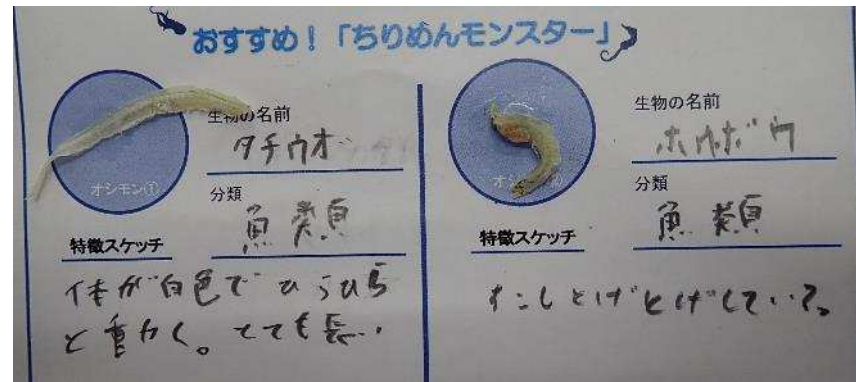 おすすめ！「ちりめんモンスター」
生物の名前
タチウオ
オシモン①
分類
魚類
特徴スケッチ
体が白色でひらひら
と動く。とても長い
生物の名前
ホウボウ
分類
魚類
特徴スケッチ
すこしとげとげしている。